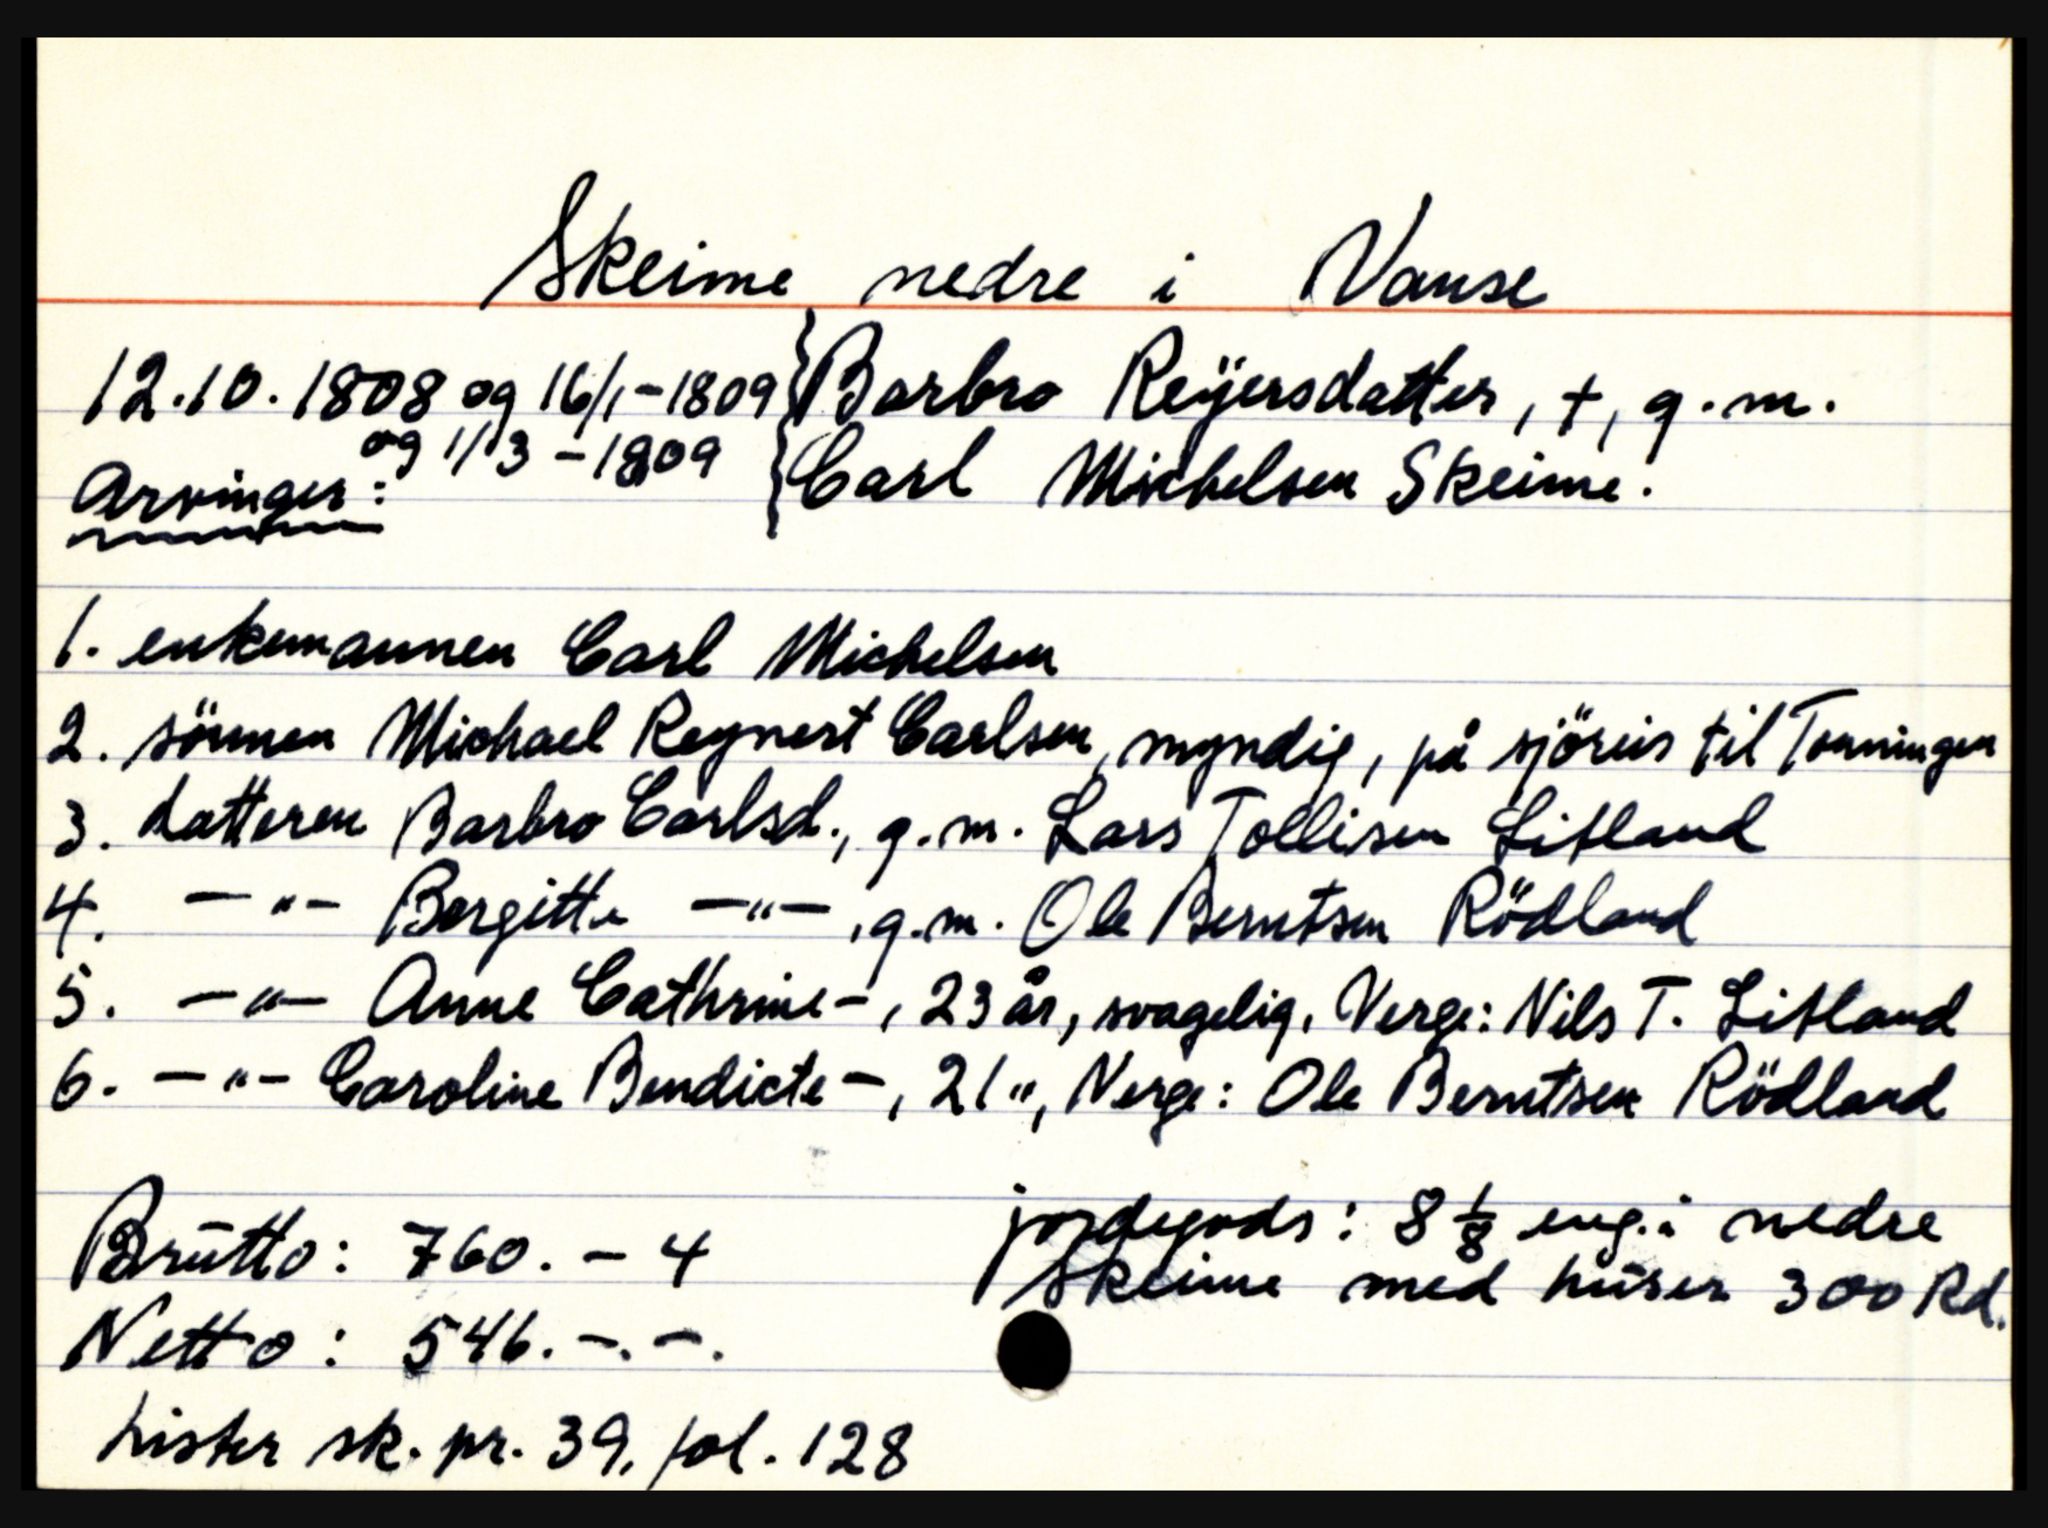 Skeime nedre i Vanse
12.10.1808 og 16/1-1809 } Barbro Reÿersdatter, +, g.m.
og 1/3 - 1809 } Carl Michelsen Skeime.
Arvinger:
1. enkemannen Carl Michelsen
2. sönnen Michael Reynert Carlsen, myndig, på sjöreis til Tonningen
3. datteren Barbro Carlsd., g.m. Lars Tollisen Litland
4. -"- Borgitte -"-, g.m. Ole Berntsen Rödland
5. -"- Anne Cathrine -, 23 år, svagelig. Verge: Nils T. Litland
6. -"- Caroline Bendicte -, 21 ", Verge: Ole Berntsen Rödland
Brūtto: 760. - 4
Netto: 546. -. -.
jordegods: 8 1/8 eng. i nedre
Skeime med hūser 300 Rd.
Lister sk. pr. 39, fol. 128